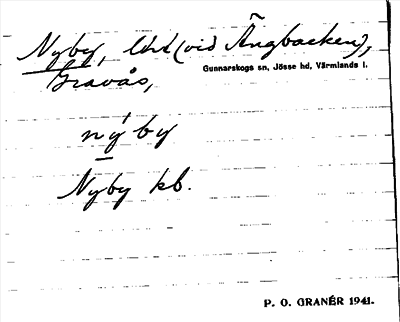 Nyby, lht (vid Ängbacken),
Gunnarskogs sn, Jösse hd, Värmlands l.
Gravås,
nýby
Nyby kb.
P. O. GRANÉR 1941.